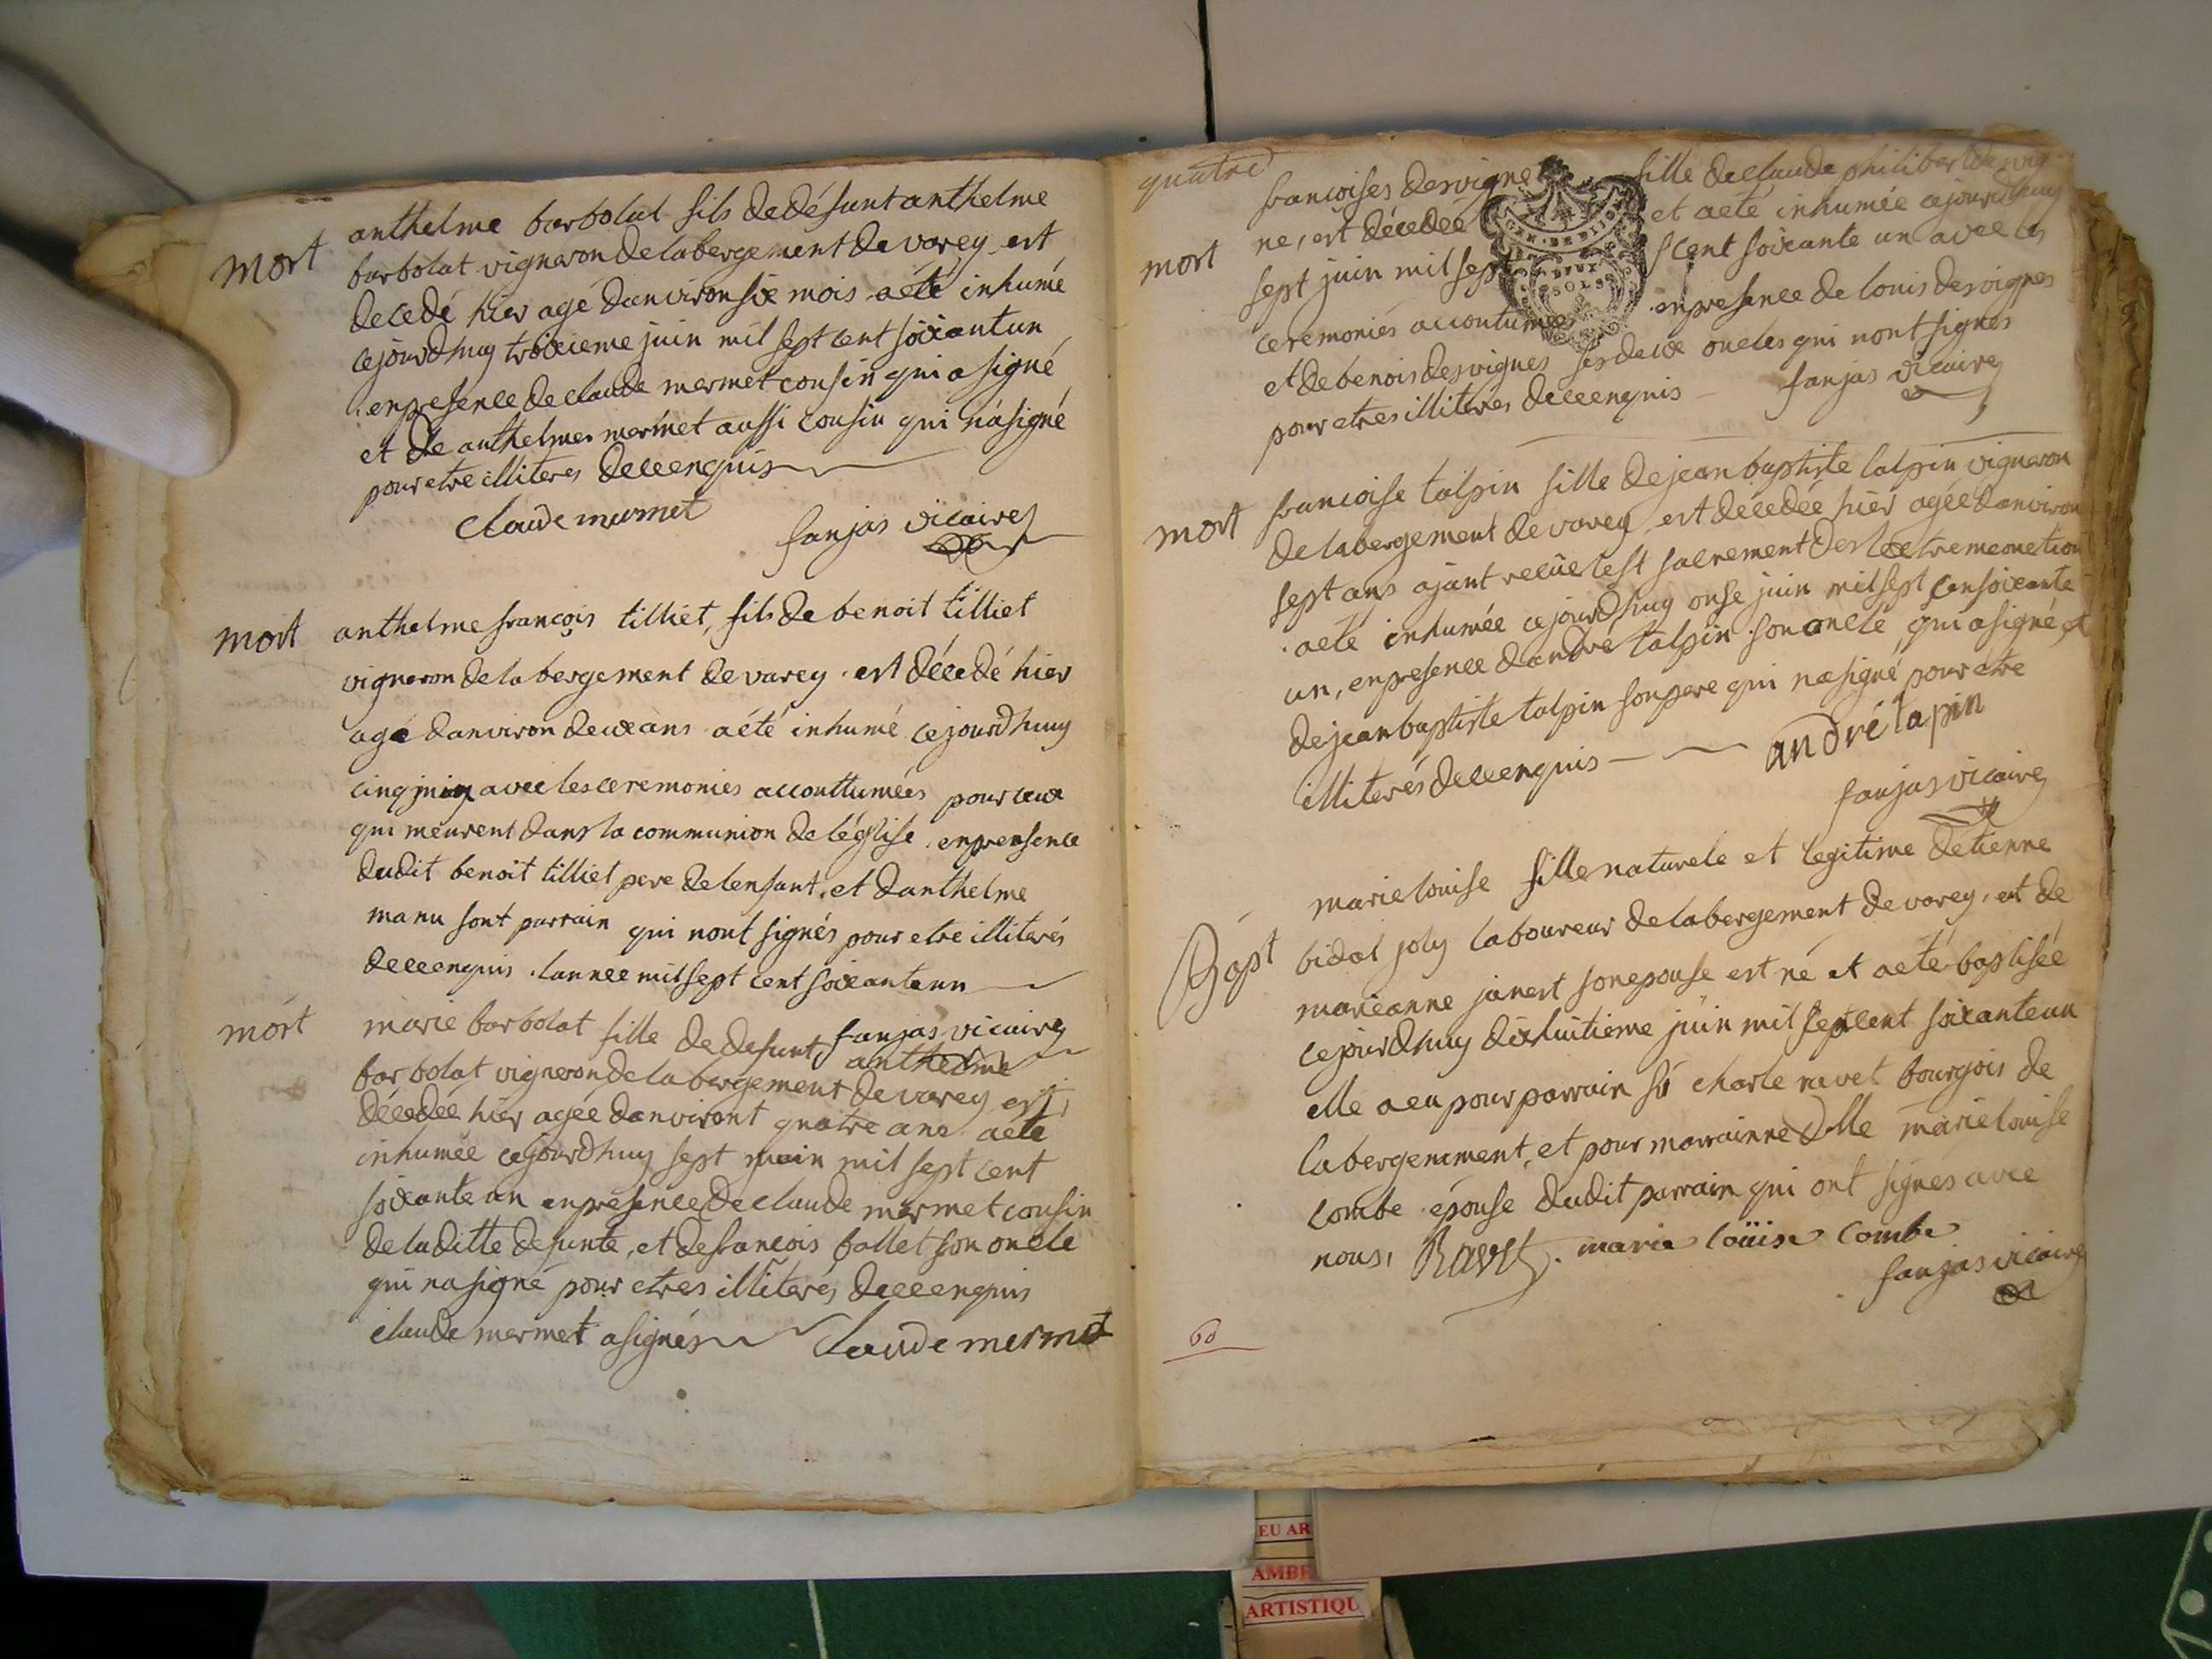 mort
anthelme barbolat fils de défunt anthelme
barbolat vigneron de labergement de varey est
decedé hier agé danviron six mois aété inhumé
cejourdhuy troixieme juin mil sept cent soixantun
enpresence de claude mermet cousin qui a signé
et de anthelmes mermet aussi cousin qui nasigné
pour etre illiteres de ce enquis
Claude mermet
fanjas vicaire
mort
anthelme françois tilliet, fils de benoit tilliet
vigneron de labergement de varey est décedé hier
agé danviron deux ans aété inhumé cejourdhuy
cinq juin avec les ceremonies accouttumées pour ceux
qui meurent dans la communion de léglise enprensence
dudit benoit tilliet pere de lenfant, et danthelme
manu sont parrain qui nont signés pour etre illiterés
de ce enquis lannee mil sept cent soixante un
fanjas vicaire
mort
marie barbolat fille de defunt anthelme
barbolat vigneron de labergement de varey est
décedée hier agée danviront quatre ans aété
inhumée cejourdhuy sept juin mil sept cent
soixante un enpresence de claude mermet cousin
de laditte defunte, et defrancois ballet son oncle
qui nasigné pour etres illiterés de ce enquis
claude mermet asignés Claude mermet
quatre
mort
francoises desvigne fille de claude philibert desvig
ne, est décedeé et aeté inhumée cejourdhuy
sept juin mil sept cent soixante un avec les
ceremonies accoutumees enpresence de louis desvignes
et de benois desvignes ses deux oncles qui nont signés
pour etres illiteres de ce enquis fanjas vicaire
GEN · DE DIJON
DEUX
SOLS
mort
francoise talpin fille de jean baptiste talpin vigneron
de labergement de varey est décedée hier agée danviron
sept ans ajant recüe le st sacrement de lextremeonction
aeté inhumée cejourdhuy onse juin mil sept cen soixante
un, enpresence dandré talpin son oncle qui asigné, et
de jean baptiste talpin son pere qui nasigné pour etre
illiterés de ce enquis andré tapin
fanjas vicaire
Bapt
marie louise fille naturele et legitime detienne
bidal joly laboureur de labergement de varey, et de
marieanne janert son epouse est né et aeté baptisée
cejourdhuy dixhuitieme juin mil sept cent soixante un
elle a eu pour parrain sr charle ravet bourgois de
labergement, et pour marrainne Dlle marie louise
combe épouse dudit parrain qui ont signes avec
nous, Ravet. marie loüise combe
fanjas vicaire
60
EU AR
AMBE
ARTISTIQU